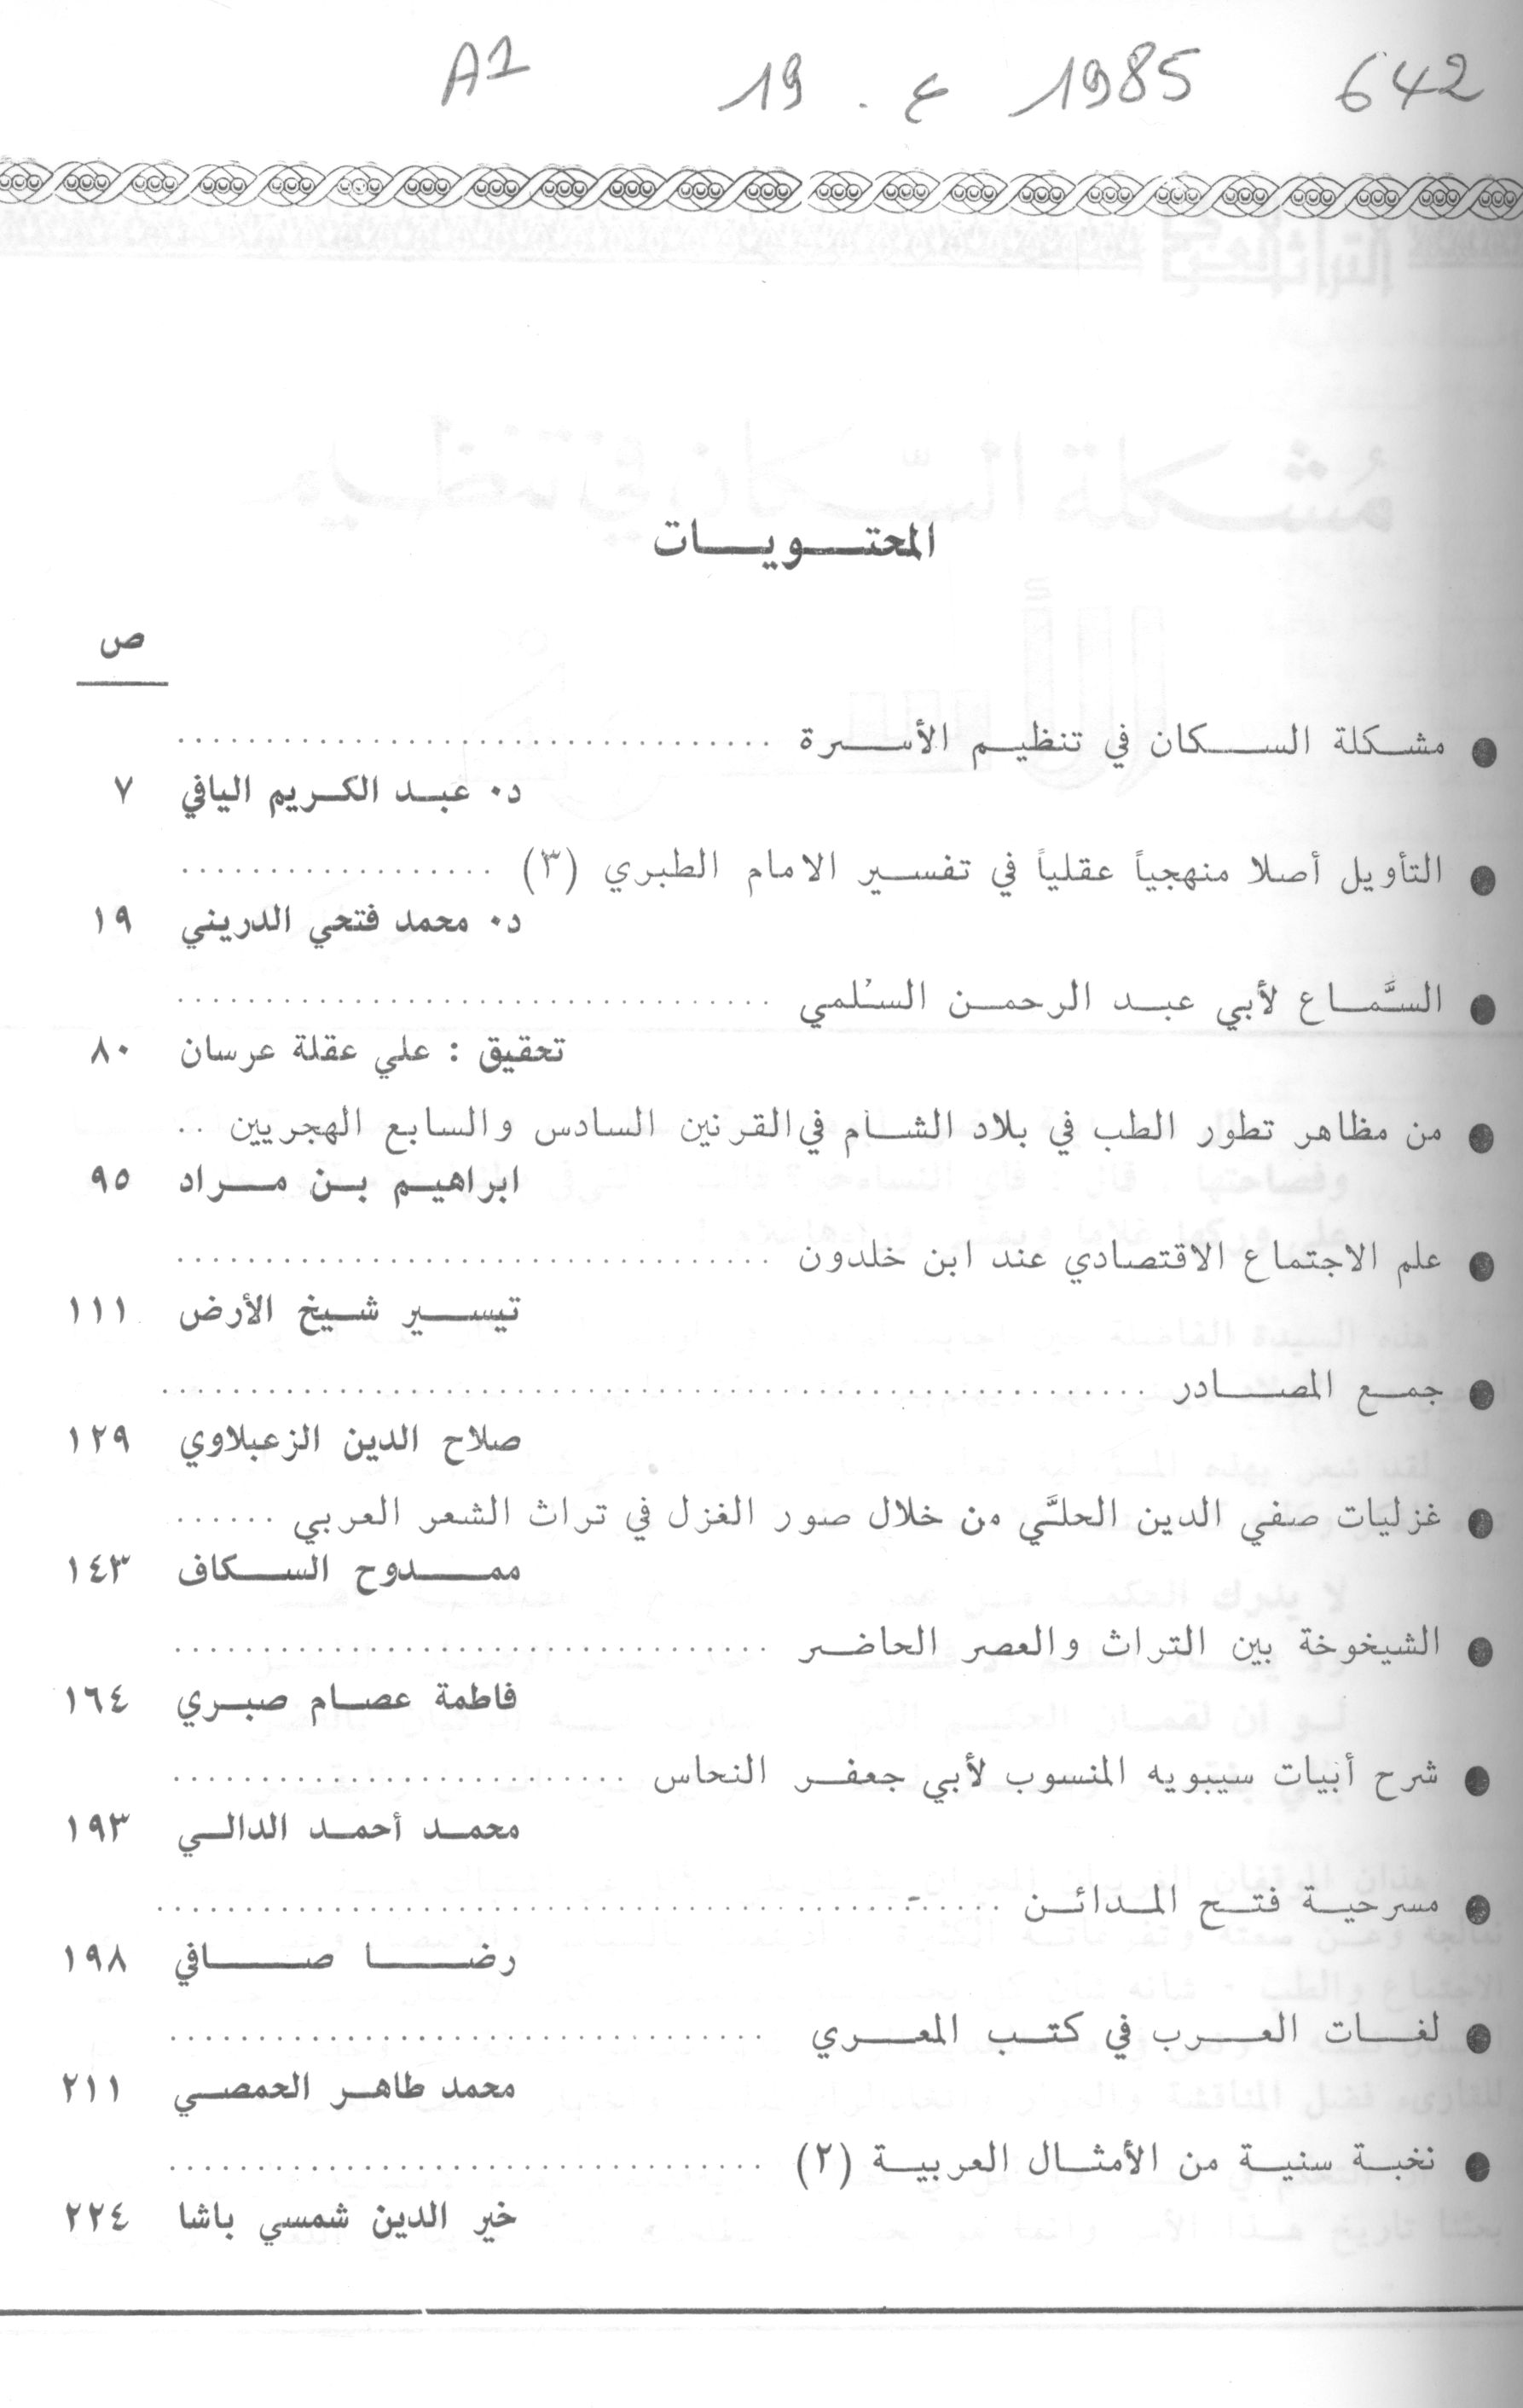 A1 19 . ع 1985 642
المحتويات
ص
● مشكلة السكان في تنظيم الأسرة ........................................
د. عبد الكريم اليافي ٧
● التأويل أصلا منهجياً عقلياً في تفسير الامام الطبري (٣) ...................
د. محمد فتحي الدريني ١٩
● السَّماع لأبي عبد الرحمن السُلمي ........................................
تحقيق : علي عقلة عرسان ٨٠
● من مظاهر تطور الطب في بلاد الشام في القرنين السادس والسابع الهجريين ..
ابراهيم بن مراد ٩٥
● علم الاجتماع الاقتصادي عند ابن خلدون ........................................
تيسير شيخ الأرض ١١١
● جمع المصادر ............................................................
صلاح الدين الزعبلاوي ١٢٩
● غزليات صفي الدين الحلَّي من خلال صور الغزل في تراث الشعر العربي .......
ممدوح السكاف ١٤٣
● الشيخوخة بين التراث والعصر الحاضر ........................................
فاطمة عصام صبري ١٦٤
● شرح أبيات سيبويه المنسوب لأبي جعفر النحاس ..............................
محمد أحمد الدالي ١٩٣
● مسرحية فتح المدائن ............................................................
رضا صافي ١٩٨
● لغات العرب في كتب المعري ........................................
محمد طاهر الحمصي ٢١١
● نخبة سنية من الأمثال العربية (٢) ........................................
خير الدين شمسي باشا ٢٢٤